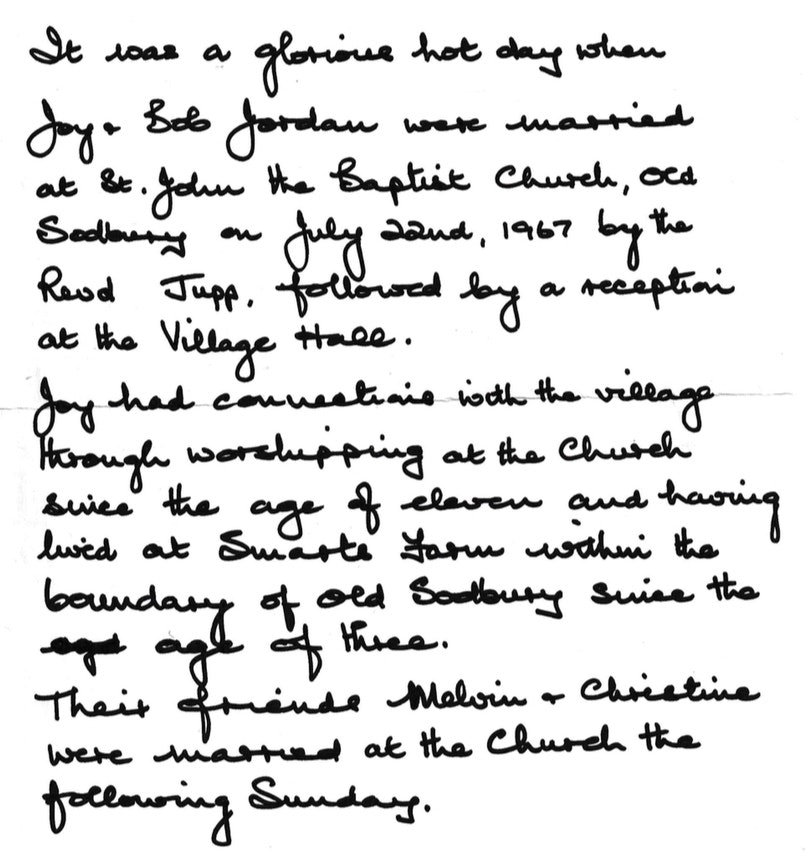 It was a glorious hot day when
Joy & Bob Jordan were married
at St. John the Baptist Church, Old
Sodbury on July 22nd, 1967 by the
Revd Jupp, followed by a reception
at the Village Hall.
Joy had connections with the village
through worshipping at the Church
since the age of eleven and having
lived at Smarts Farm within the
boundary of Old Sodbury since the
age of three.
Their friends Melvin & Christine
were married at the Church the
following Sunday.